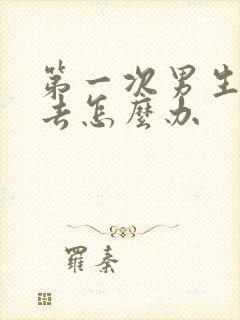 第一次男生
去怎麼办
羅秦